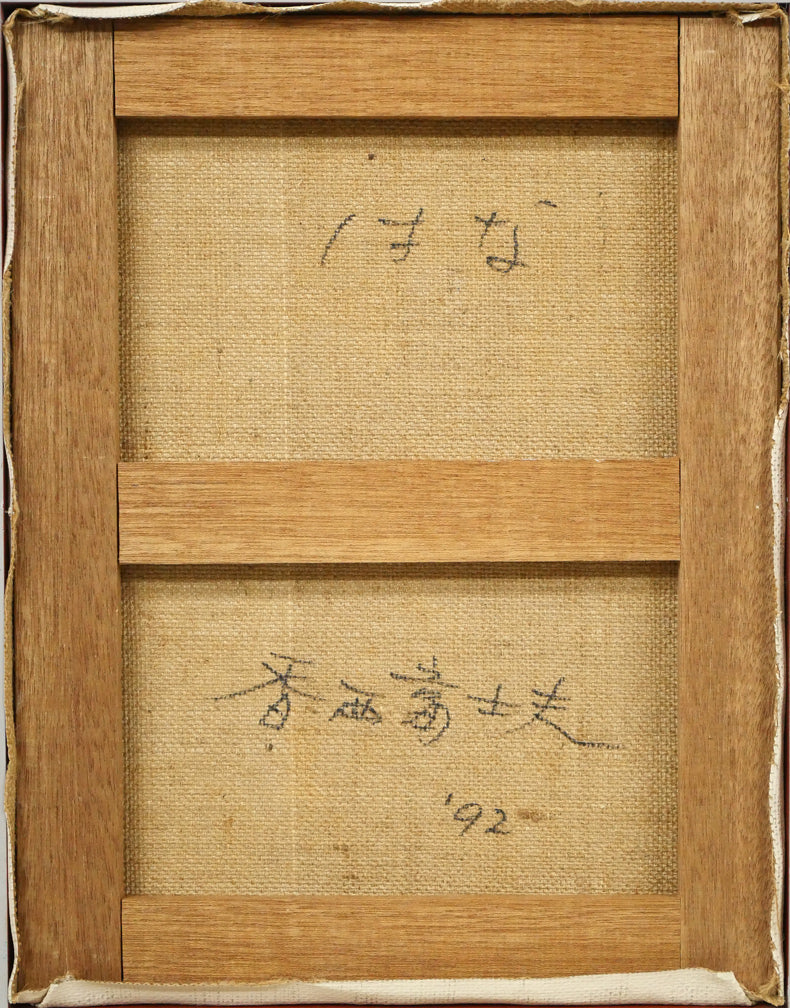 はな
香西富士夫
'92